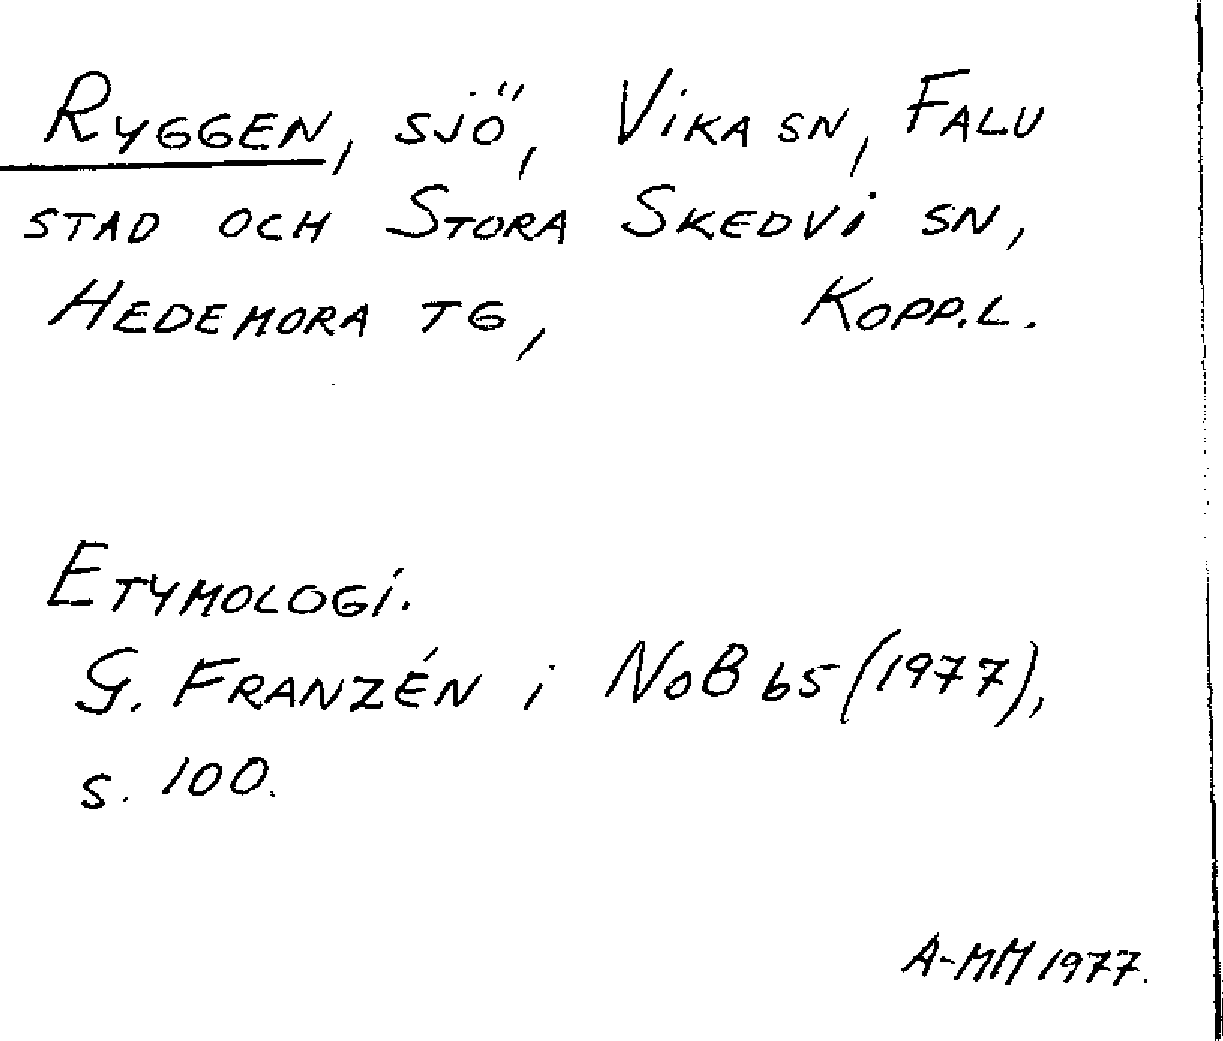 Ryggen, sjö, Vika sn, Falu
stad och Stora Skedvi sn,
Hedemora tg, Kopp.l.
Etymologi.
G. Franzén i NoB 65 (1977),
s. 100.
A-MM 1977.